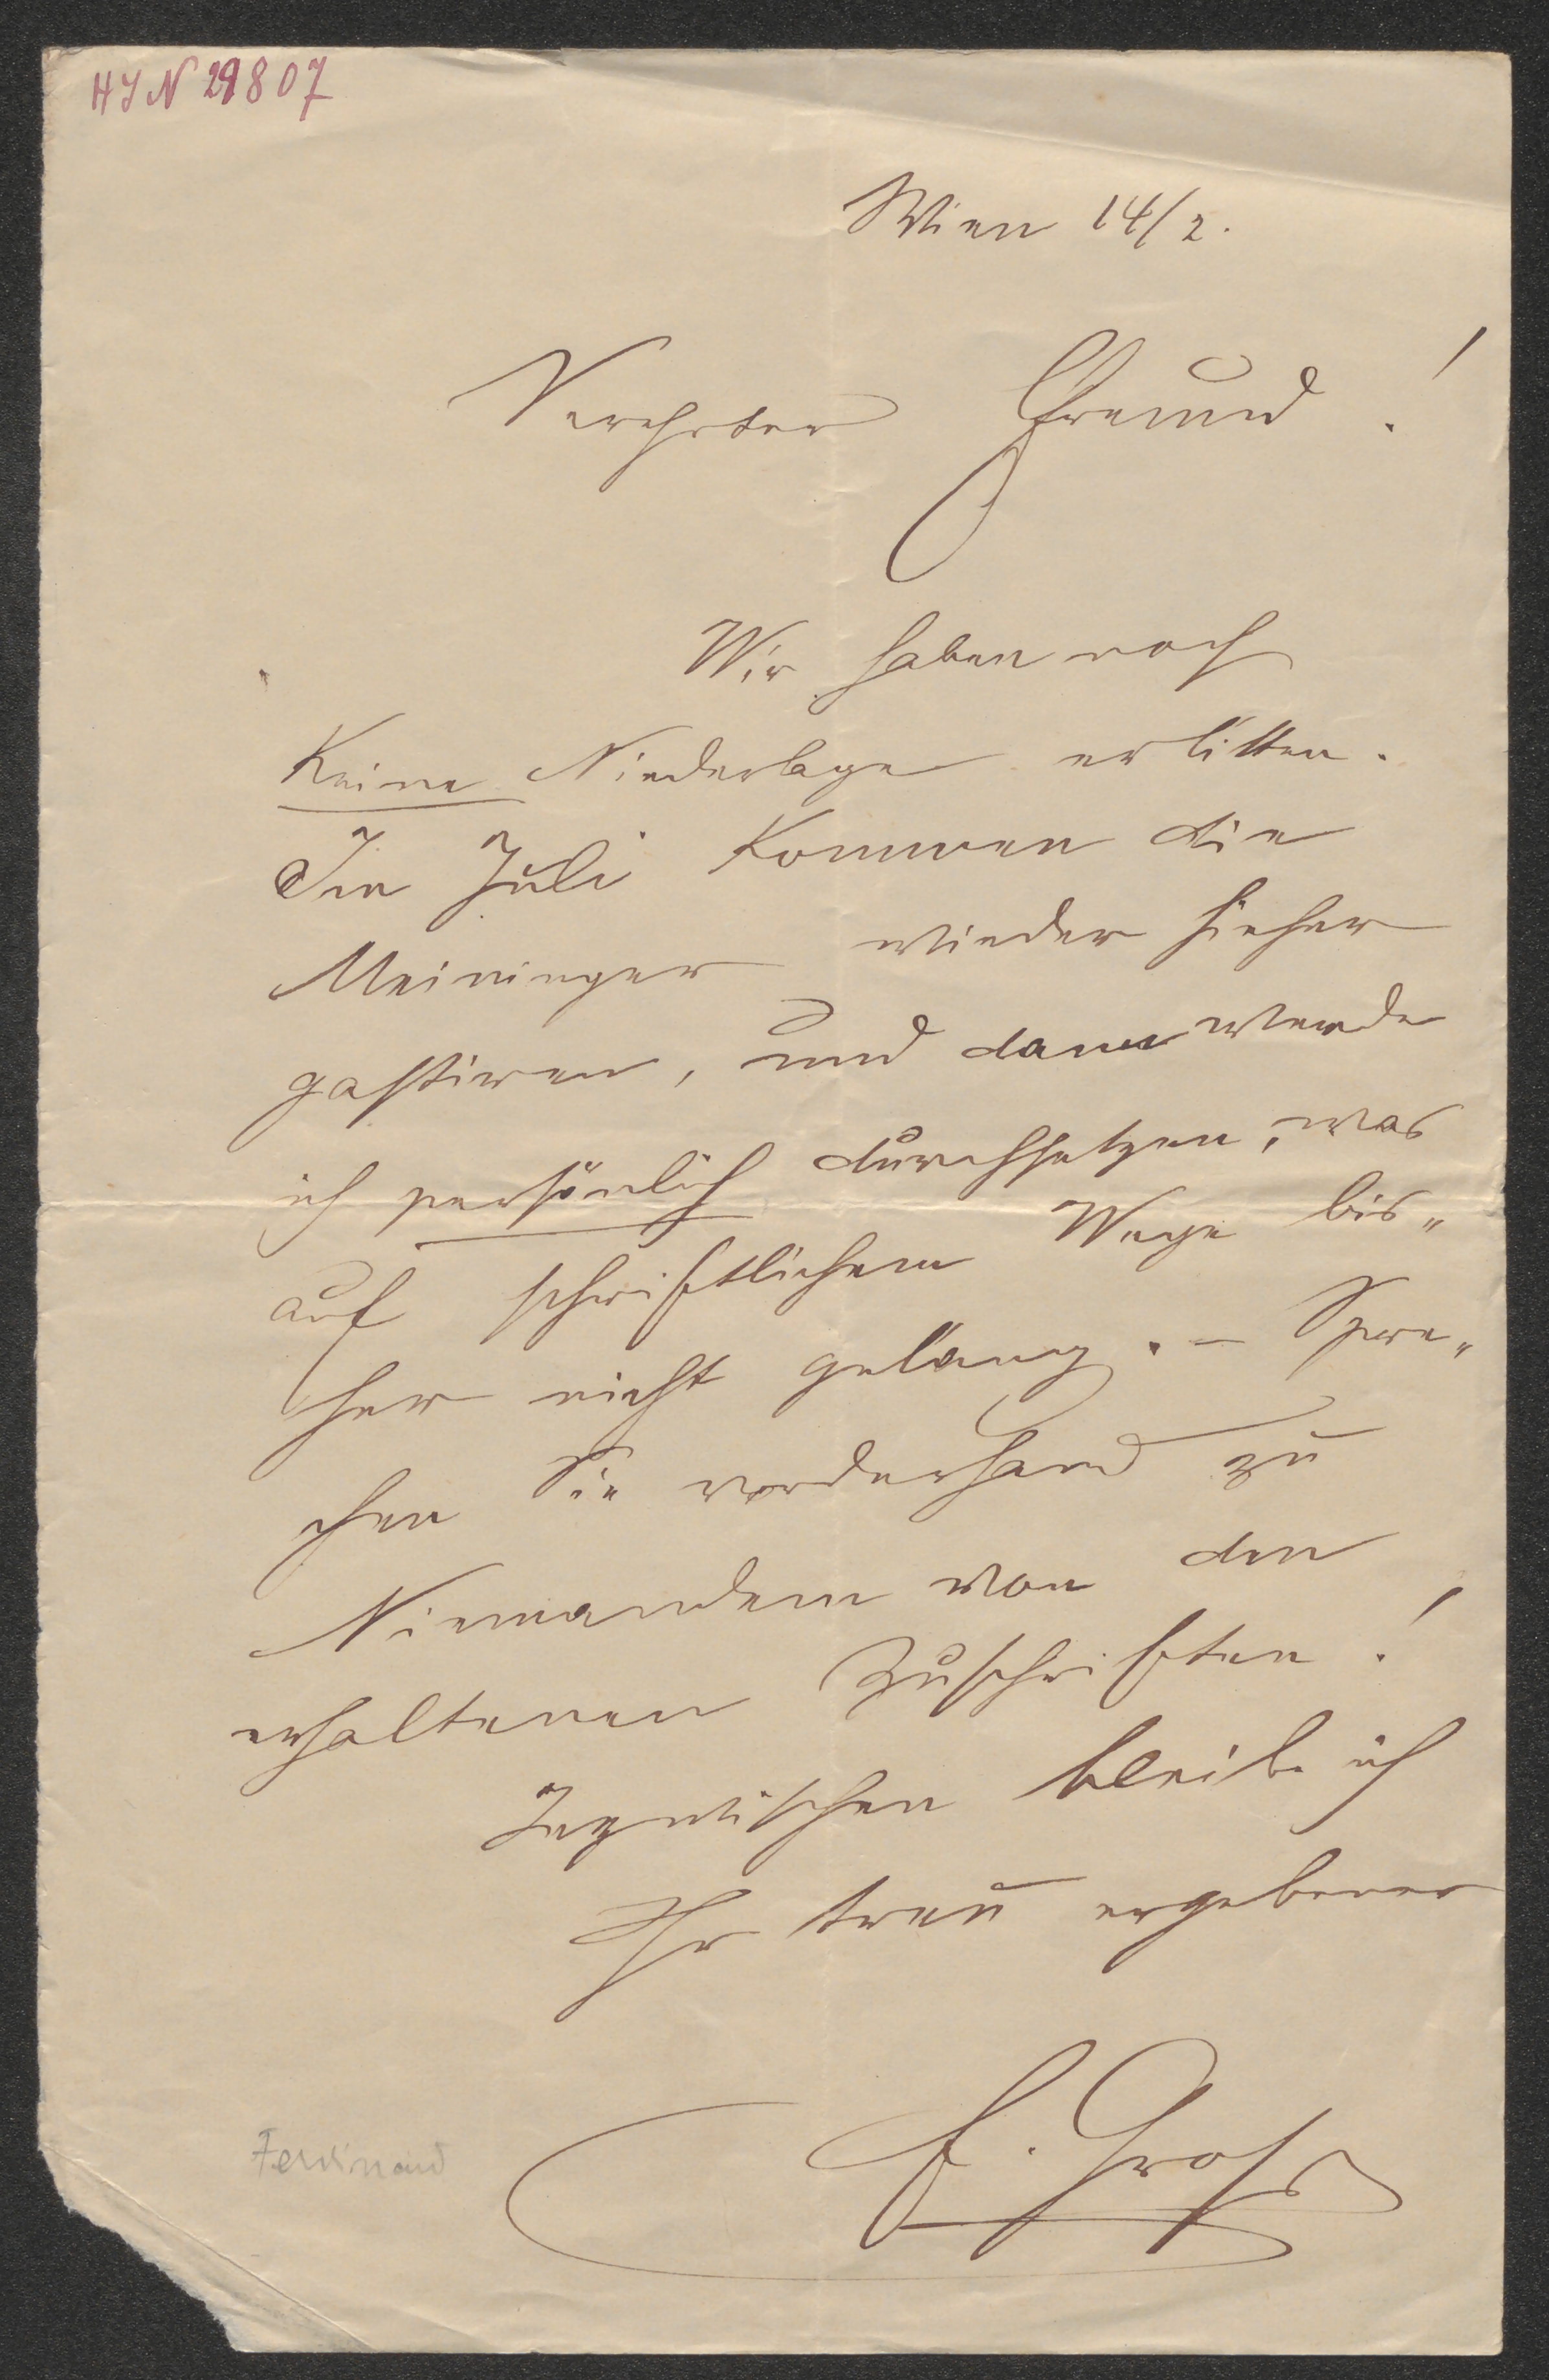 HJN 29807
Wien 14/2.
Verehrter Freund!
Wir haben noch
keine Niederlage erlitten.
Im Juli kommen die
Meininger wieder hieher
gastiren, und dann werde
ich persönlich durchsetzen, was
auf schriftlichem Wege bis„
her nicht gelang. – Spre„
chen Sie vorderhand zu
Niemandem von den
erhaltenen Zuschriften!
Inzwischen bleibe ich
Ihr treu ergebener
F. Groß
Ferdinand